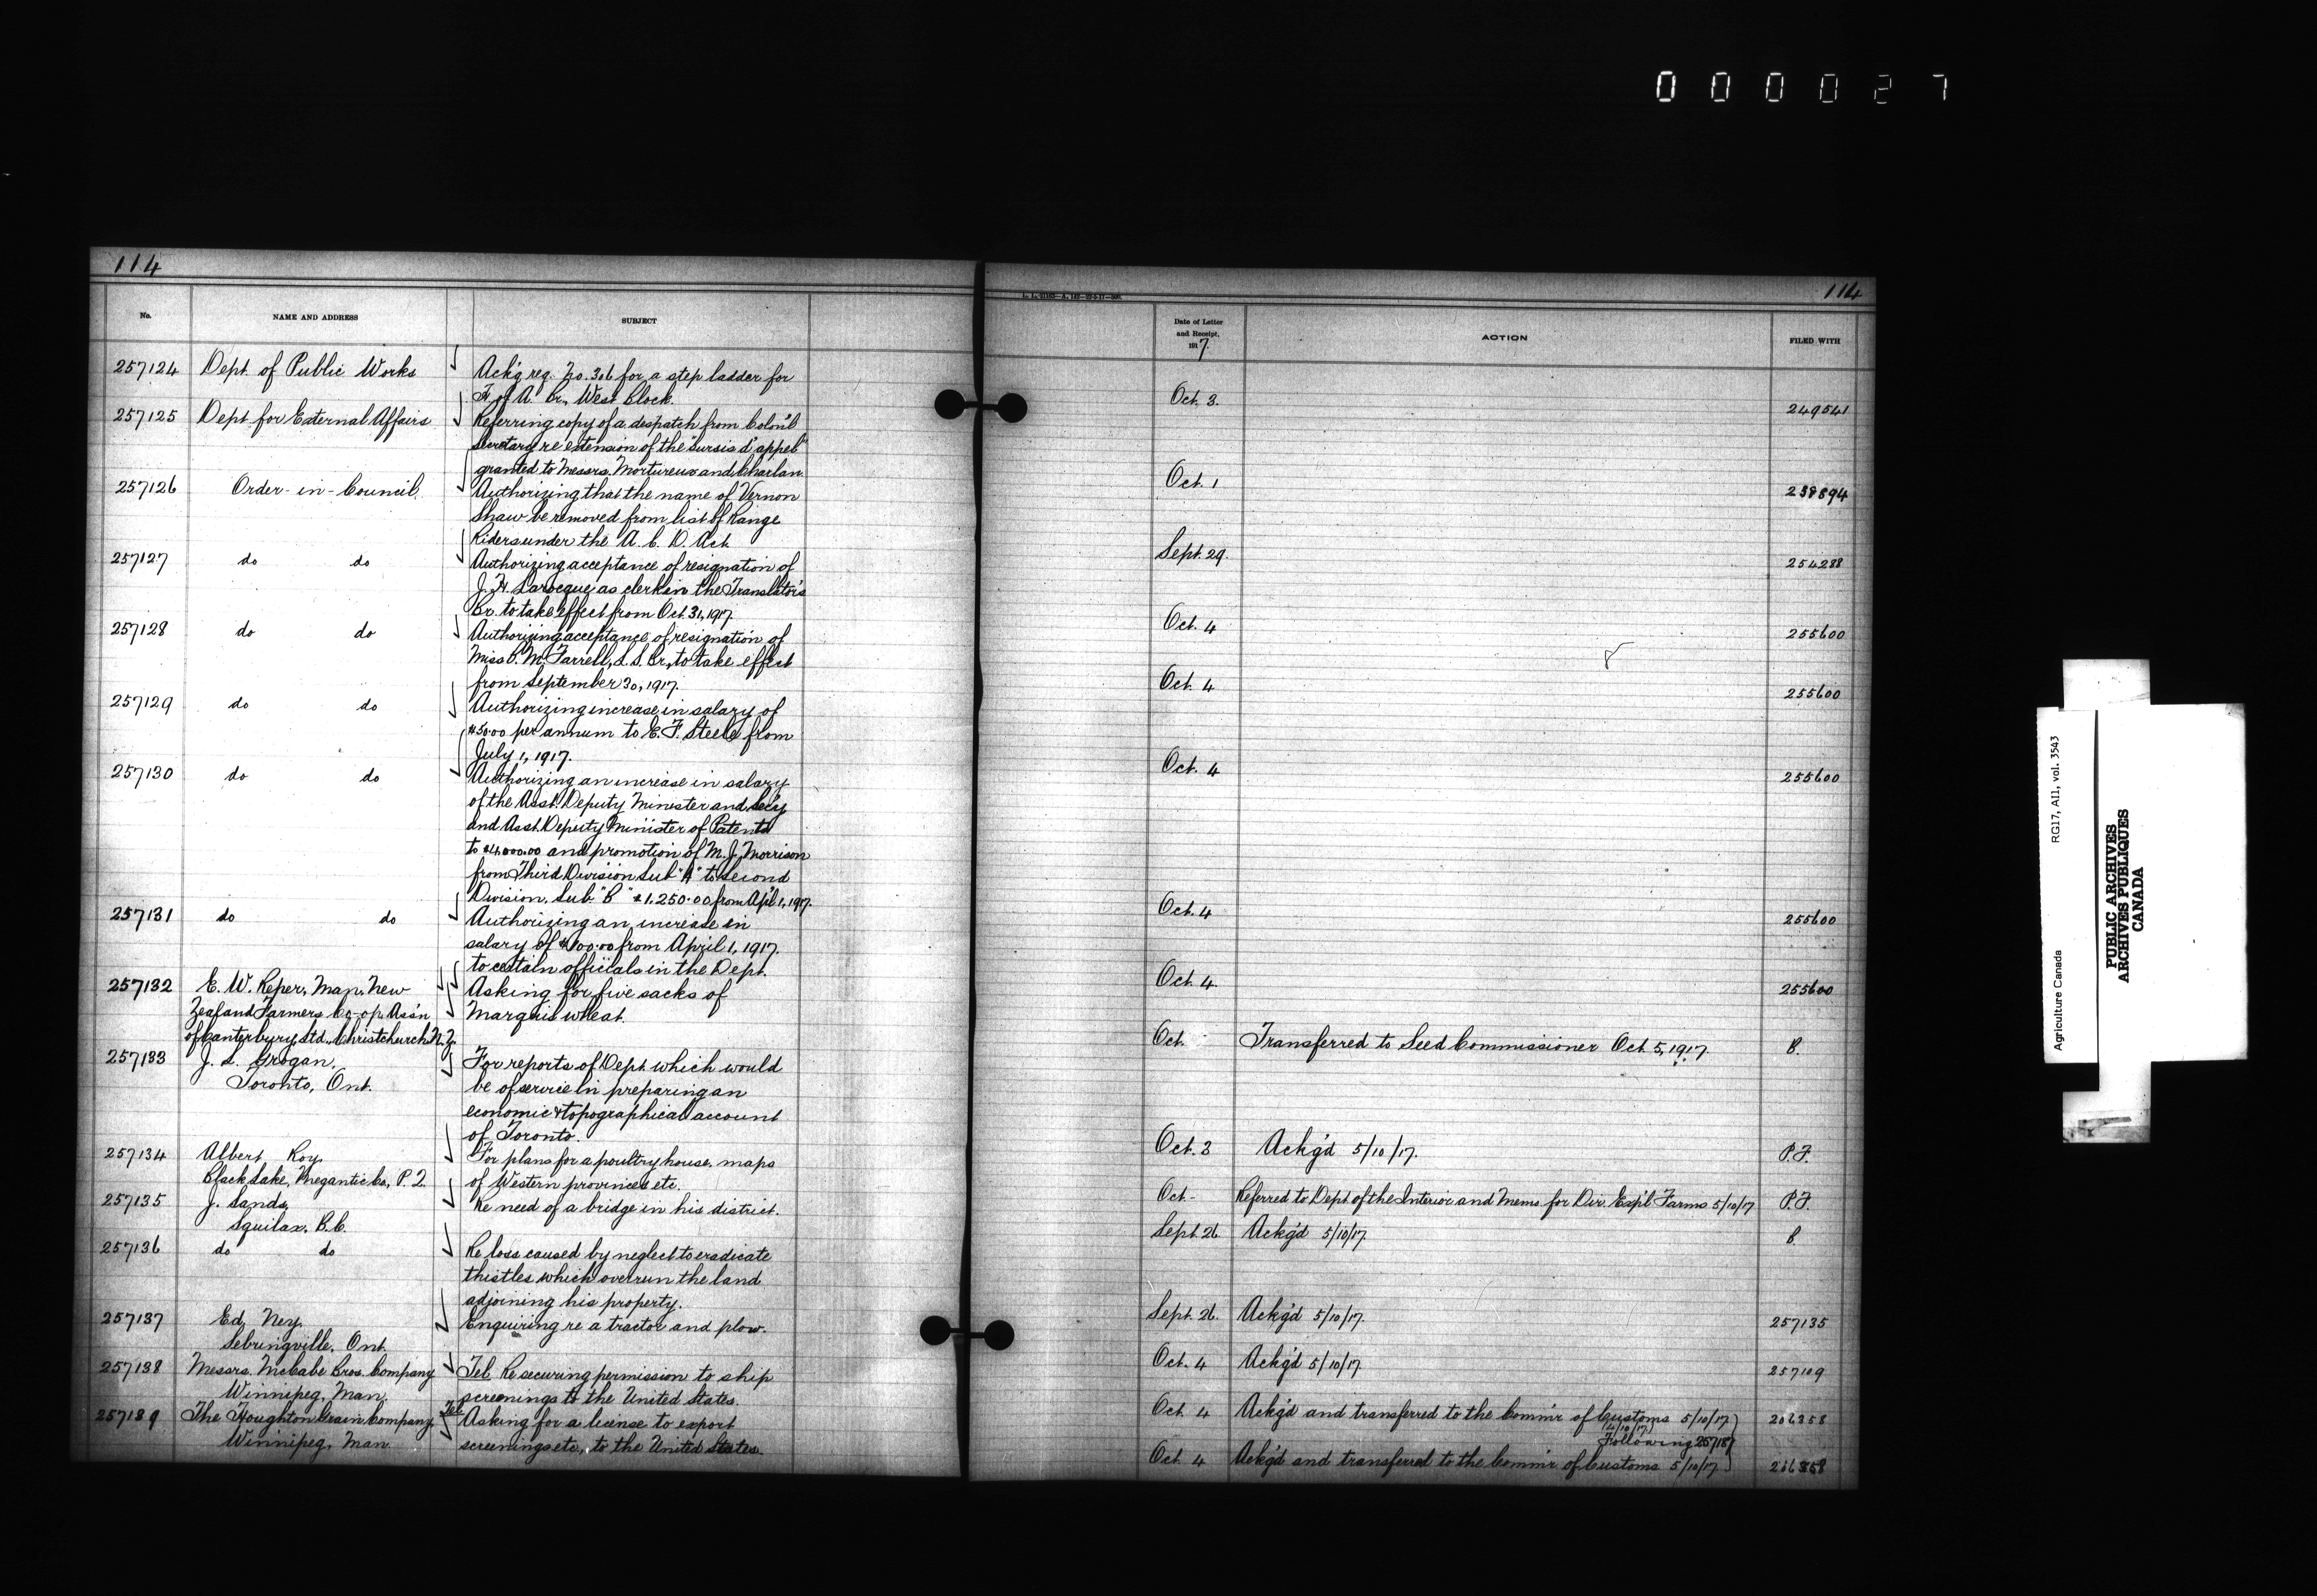 000027
114
No.
NAME AND ADDRESS
SUBJECT
257124 Dept. of Public Works Ackg reg. No. 306 for a step ladder for
H of A Br., West Block.
257125 Dept for External Affairs Referring copy of a despatch from Colon'l
Secretary re extension of the "sursis d'appel"
granted to Messrs. Mortureux and Charlan.
257126 Order-in-Council. Authorizing that the name of Vernon
Shaw be removed from list of Range
Riders under the A. C. D. Act.
257127 do do Authorizing acceptance of resignation of
J. H. Larocque as clerk in the Translator's
Br. to take effect from Oct. 31, 1917.
257128 do do Authorizing acceptance of resignation of
Miss P. M. Farrell, L. S. Br., to take effect
from September 30, 1917.
257129 do do Authorizing increase in salary of
$50.00 per annum to E. F. Steele from
July 1, 1917.
257130 do do Authorizing an increase in salary
of the Asst. Deputy Minister and Sec'y
and Asst. Deputy Minister of Patents
to $4,000.00 and promotion of M. J. Morrison
from Third Division Sub "A" to Second
Division, Sub. "B" $1,250.00 from Apl 1, 1917.
257131 do do Authorizing an increase in
salary of $100.00 from April 1, 1917.
to certain officials in the Dept.
257132 E. W. Reper, Man. New Asking for five sacks of
Zealand Farmers Co-op. Ass'n Marquis wheat.
of Canterbury, Ltd., Christchurch N. Z.
257133 J. L. Grogan, For reports of Dept which would
Toronto, Ont. be of service in preparing an
economic & topographical account
of Toronto.
257134 Albert Roy, For plans for a poultry house, maps
Black Lake, Megantic Co., P. Q. of Western provinces etc.
257135 J. Sands, Re need of a bridge in his district.
Squilax, B.C.
257136 do do Re loss caused by neglect to eradicate
thistles which overrun the land
adjoining his property.
257137 Ed. Ney. Enquiring re a tractor and plow.
Sebringville, Ont.
257138 Messrs. McCabe Bros. Company Tel. Re securing permission to ship
Winnipeg, Man. screenings to the United States.
257139 The Houghton Grain Company Tel. Asking for a license to export
Winnipeg, Man. screenings etc, to the United States.
114
Date of Letter
and Receipt,
1917.
ACTION
FILED WITH
Oct. 3. 249541
Oct. 1 238894
Sept. 29. 254288
Oct. 4 255600
Oct. 4 255600
Oct. 4 255600
Oct. 4 255600
Oct. 4. 255600
Oct. Transferred to Seed Commissioner Oct. 5, 1917. B.
Oct. 3 Ackg'd 5/10/17. P.F.
Oct - Referred to Dept of the Interior and Memo. for Dir. Exp'l Farms 5/10/17 P.F.
Sept. 26 Ackg'd 5/10/17. B.
Sept. 26. Ackg'd 5/10/17. 257135
Oct. 4 Ackg'd 5/10/17. 257109
Oct. 4 Ackg'd and transferred to the Comm'r of Customs 5/10/17 206358
Following
Oct. 4 Ackg'd and transferred to the Comm'r of Customs 5/10/17. 206358
Agriculture Canada RG17, A11, vol. 3543
PUBLIC ARCHIVES
ARCHIVES PUBLIQUES
CANADA